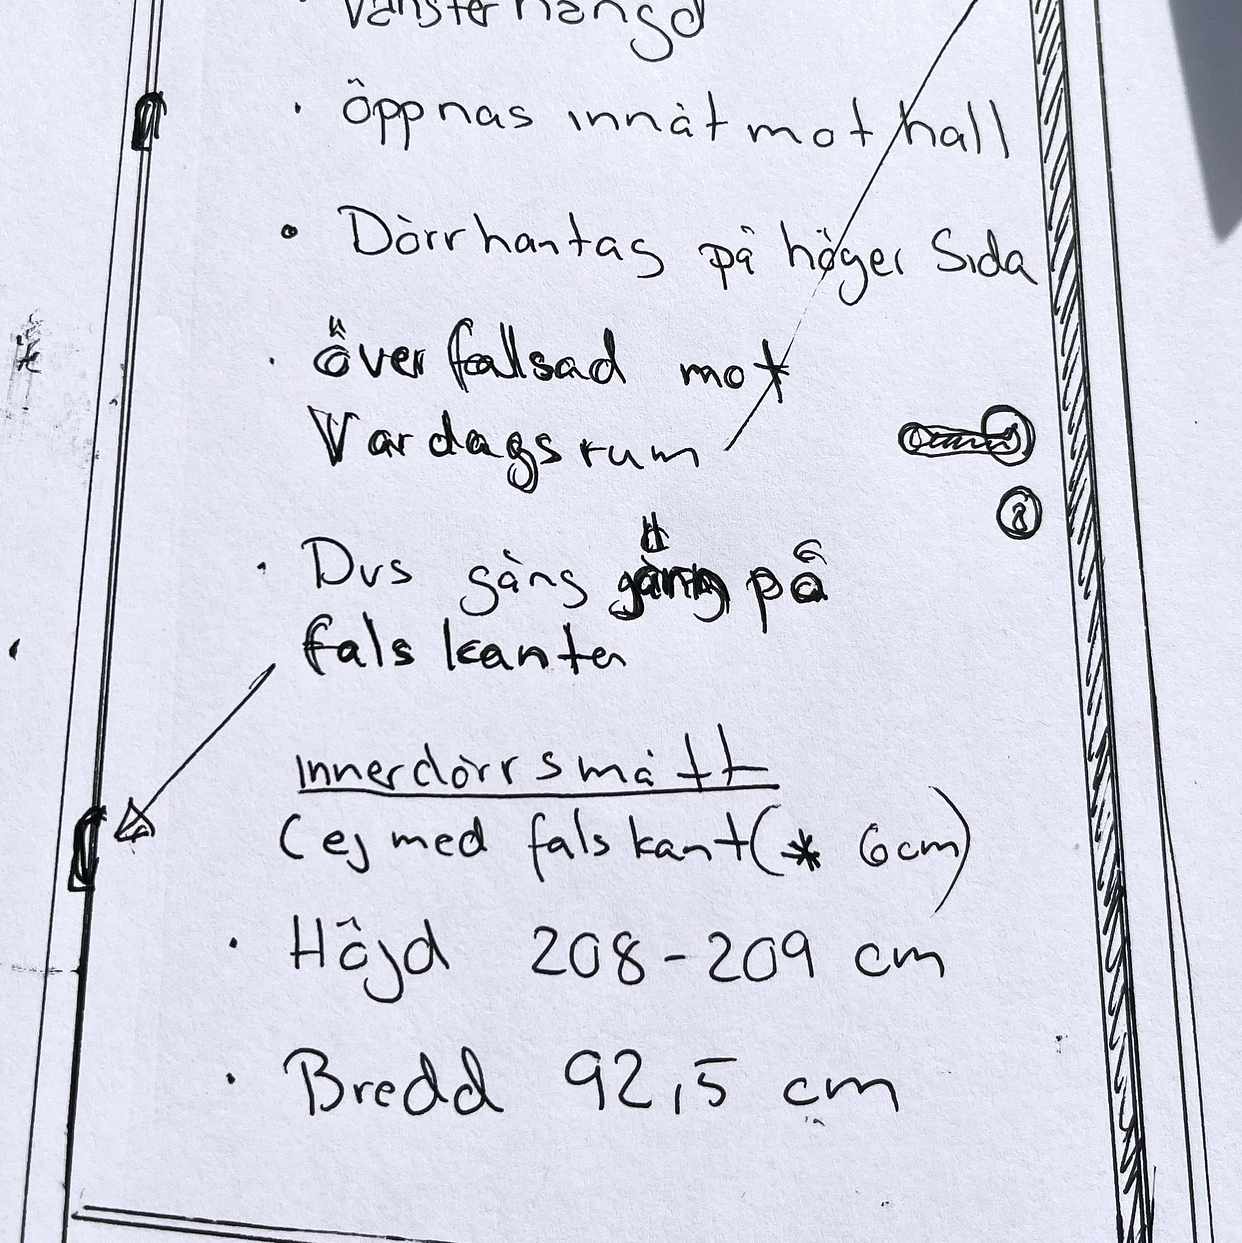 Vänsterhängd
• Öppnas innåt mot hall
• Dörrhantag på höger Sida
• överfalsad mot
Vardagsrum
• Dvs gång på
falskanten
innerdörrsmått
(ej med falskant (* 6cm)
• Höjd 208-209 cm
• Bredd 92,5 cm